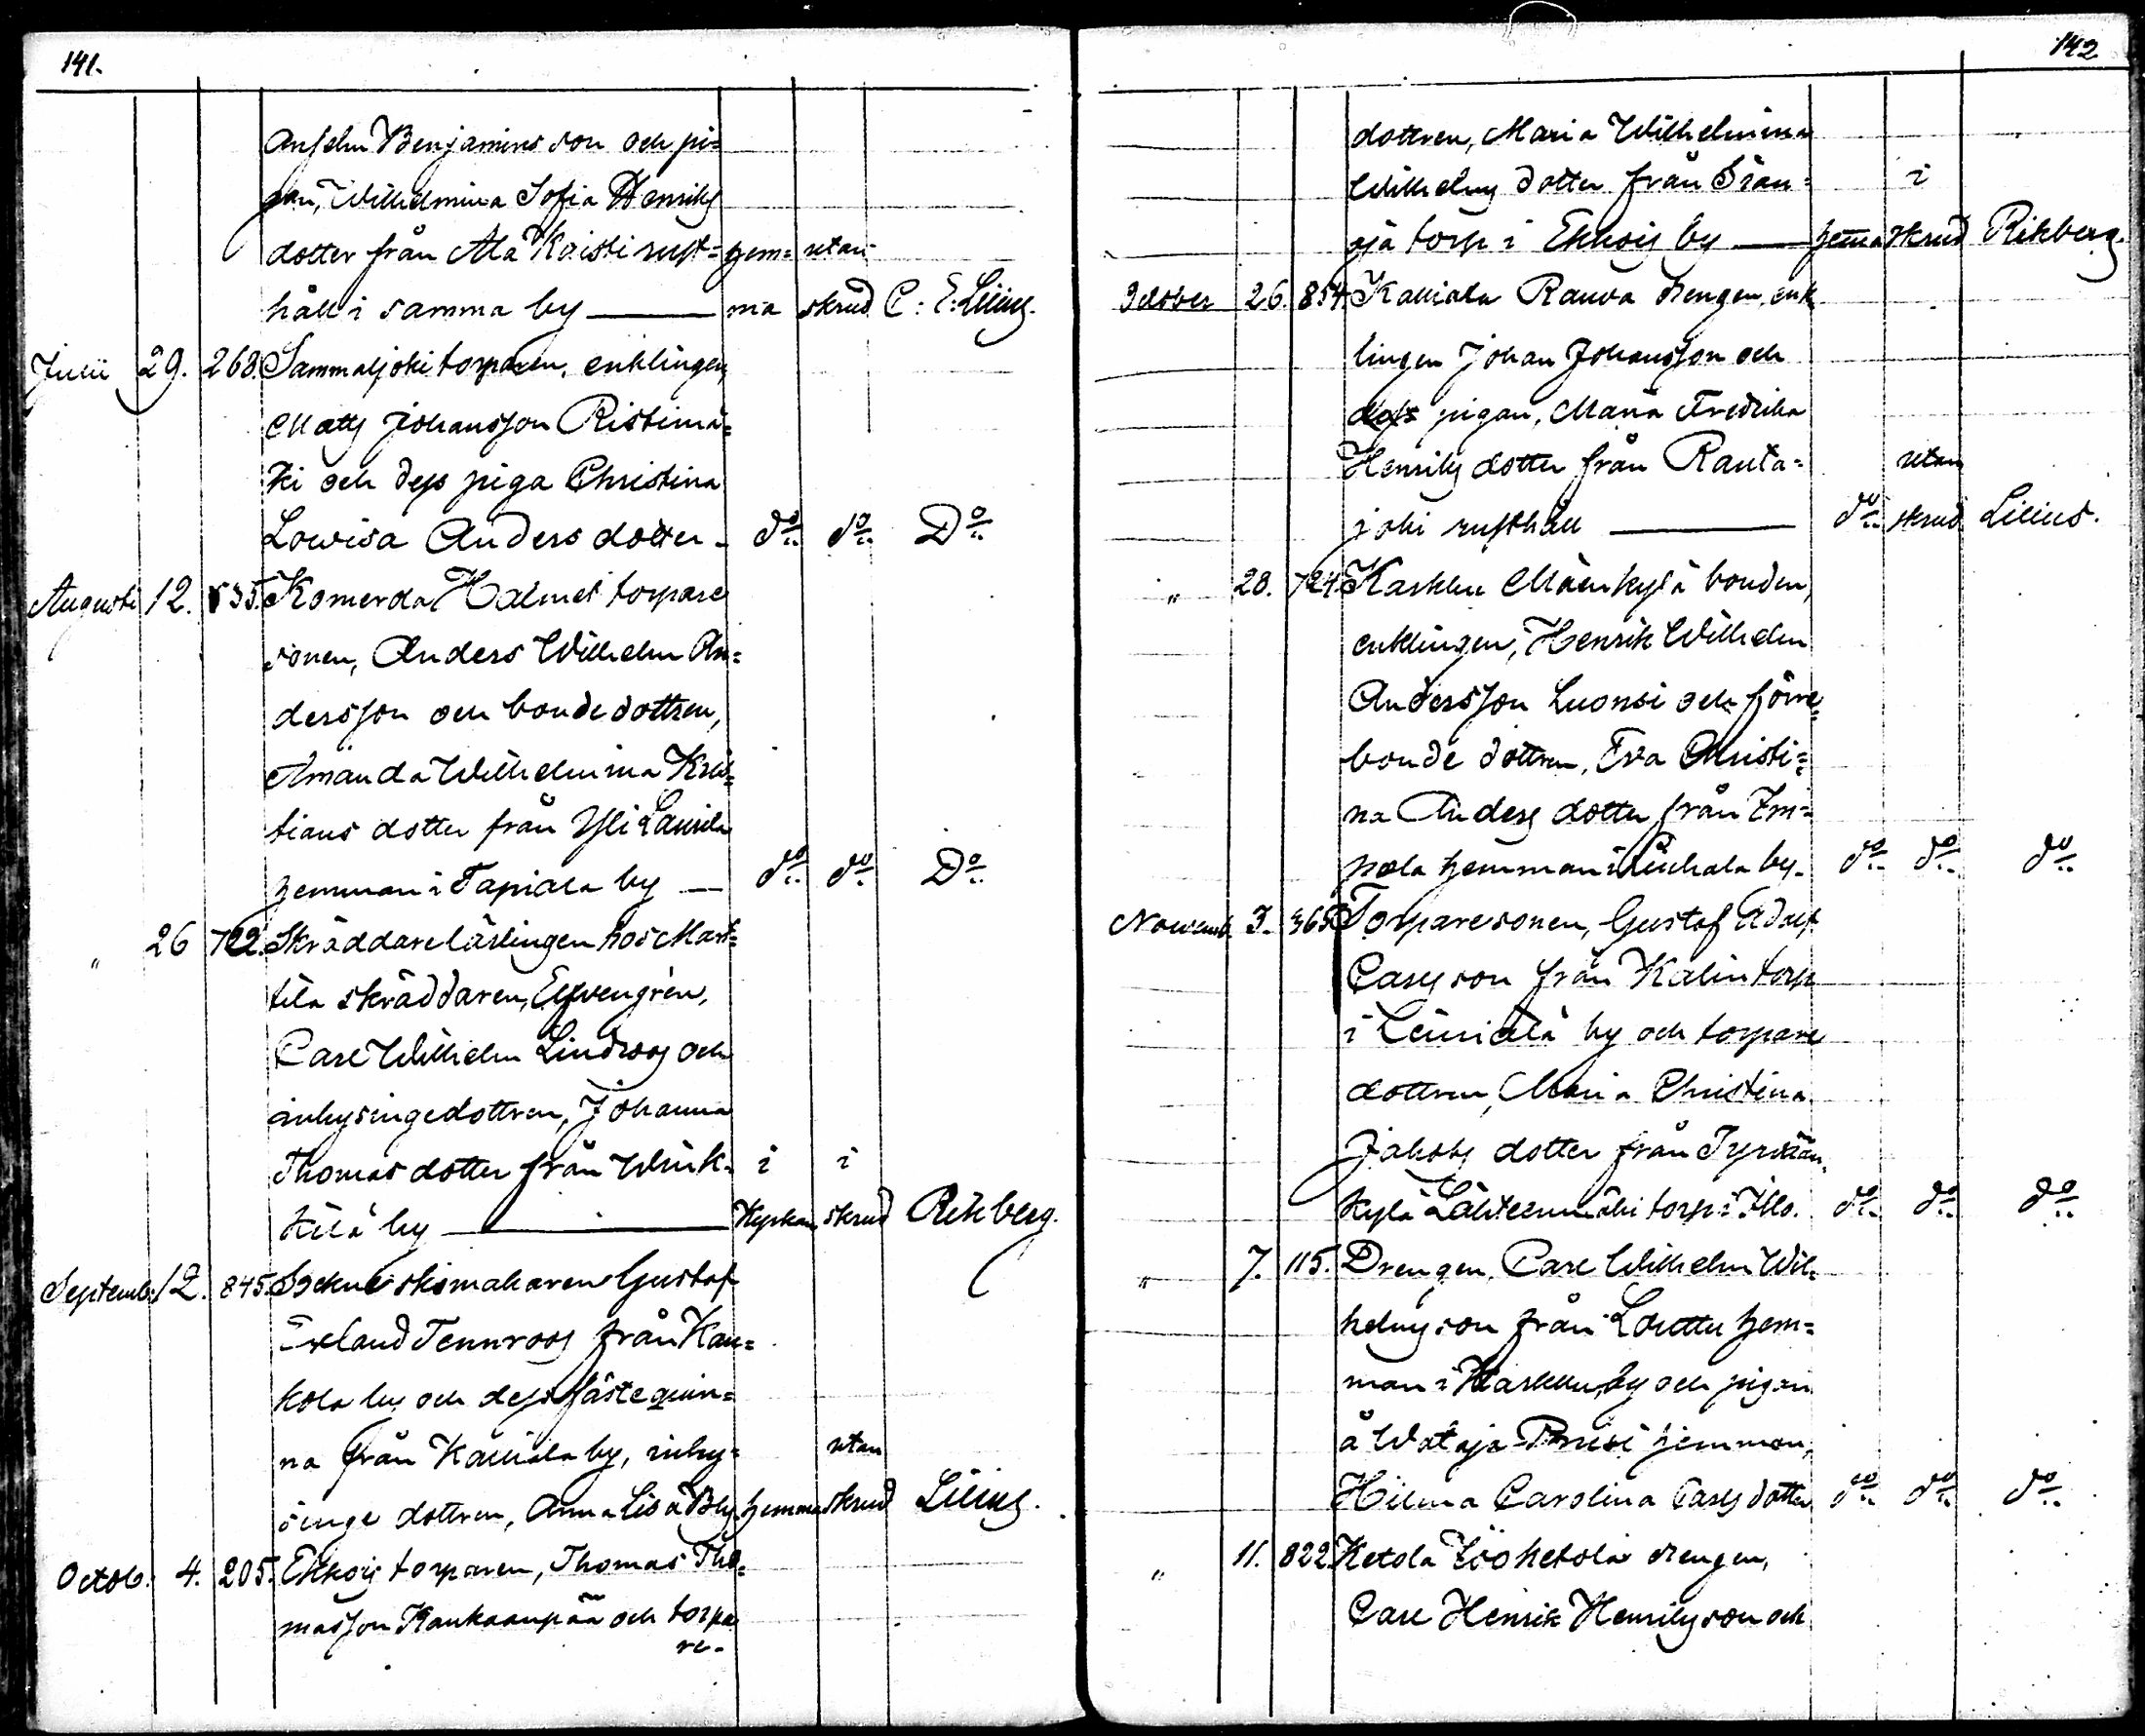 141.
Anselm Benjamins son och pi=
gan, Wilhelmina Sofia Henriks
dotter från Ala Kaisti rust= hem= utan
håll i samma by — ma skrud C: E: Lilius.
Julii 29. 268. Sammaljoki torparen, enklingen,
Matts Johansson Ristimä=
ki och dess piga Christina
Lowisa Anders dotter - do do Do
Augusti 12. 835. Komerola Halmet torpare
sonen, Anders Wilhelm An=
dersson och bonde dottren,
Amanda Wilhelmina Kris=
tians dotter från Yli Laurila
hemman i Tapiala by — do do Do
" 26 722. Skräddare lärlingen hos Mart=
tila skräddaren, Elfvengrén,
Carl Wilhelm Lindroos och
inhysingedottren, Johanna
Thomas dotter från Wink= i i
kilä by — Kyrkan skrud Rikberg.
Septemb. 12. 845. Sockne skomakaren Gustaf
Erland Tennroos från Kau=
kola by och dess fästeqvin=
na från Kalliala by, inhy= utan
singe dottren, Anna Lisa Bly hemma skrud Lilius.
Octob. 4. 205. Ekkois torparen, Thomas Tho=
masson Kankaanpää och torpa
re-
142
dottren, Maria Wilhelmina
Wilhelms dotter från i
oja torp i Ekkois by — hemma skrud Rikberg.
October 26. 854. Kalliala Rauva drengen, enk
lingen Johan Johansson och
dess pigan, Maria Fredrika
Henriks dotter från Rauta= utan
joki rusthåll — do skrud Lilius.
" 28. 724. Karkku Mäenkylä bonden,
enklingen, Henrik Wilhelm
Andersson Luonsi och förre
bonde dottren, Eva Christi=
na Anders dotter från Im=
pola hemman i by. do do do
Novemb. 3. 365. Torparesonen, Gustaf Adolf
Carls son från Kalin torp
i by och torpare
dottren, Maria Christina
Jakobs dotter från Tyrvään
kylä Lähteenmäki torp i Illo. do do do
" 7. 115. Drengen, Carl Wilhelm Wil=
helms son från Loutti hem=
man i Karkku by och pigan
å Wataja Prusi hemman,
Hilma Carolina Carls dotter do do do
" 11. 822. Ketola Isoketola drengen,
Carl Henrik Henriks son och